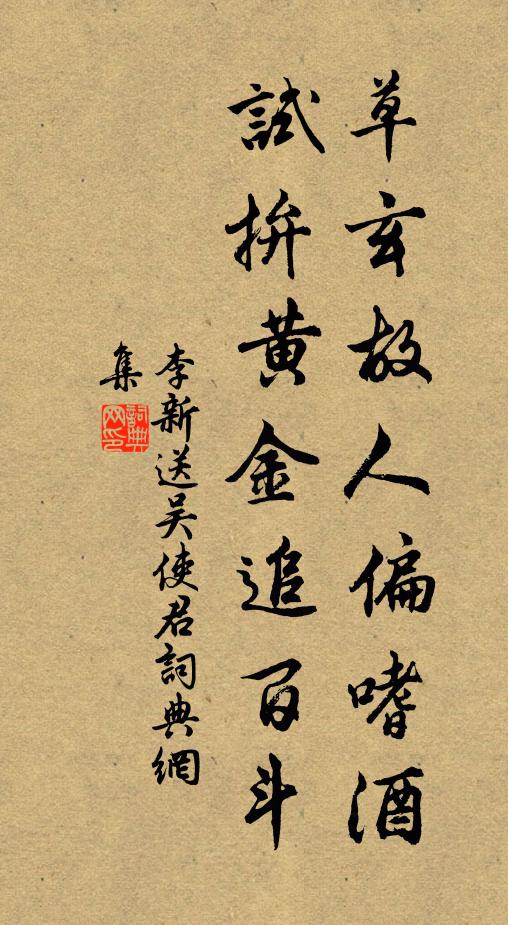 草玄故人偏嗜酒
試拚黃金追百斗
李新送吳使君詞典網
集
詞典網印